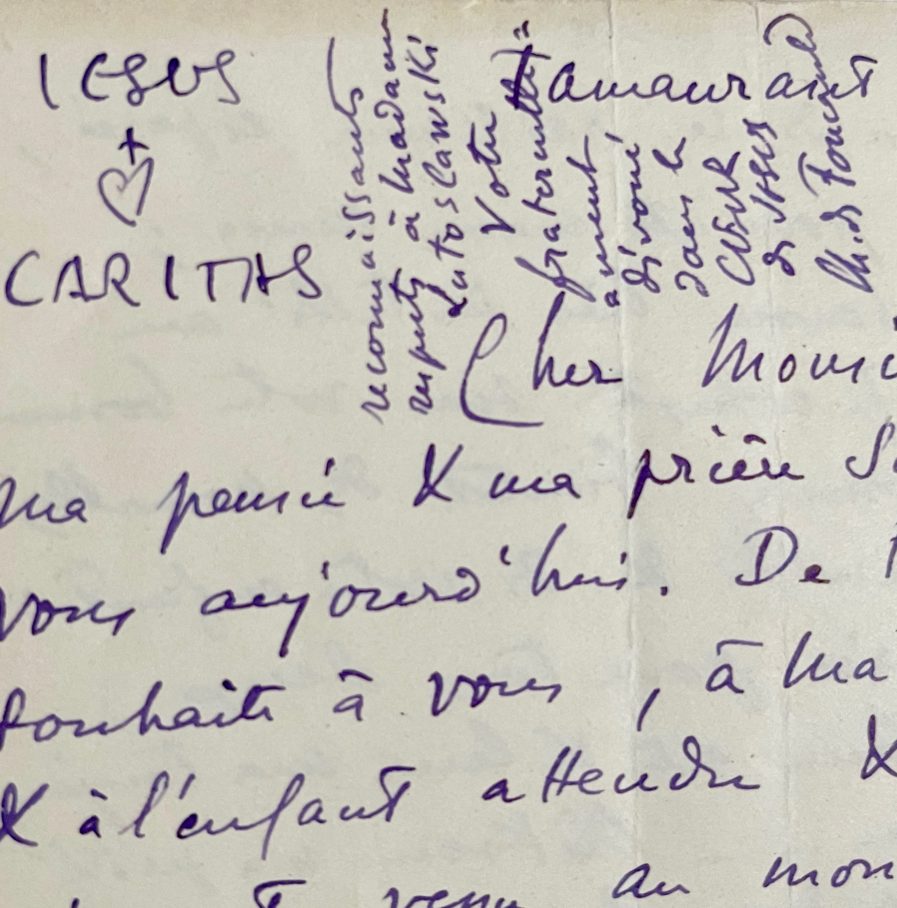 IESUS
CARITAS
Tamanrasset
reconnaissants
respects à Madame
Lutoslawski
Votre
fraternelle
ment
dévoué
dans le
CŒUR
de JESUS
Ch. de Foucauld
Cher Monsi
ma pensée & ma prière so
vous aujourd'hui. De
souhaite à vous, à Ma
& à l'enfant attendu &
venu au mon